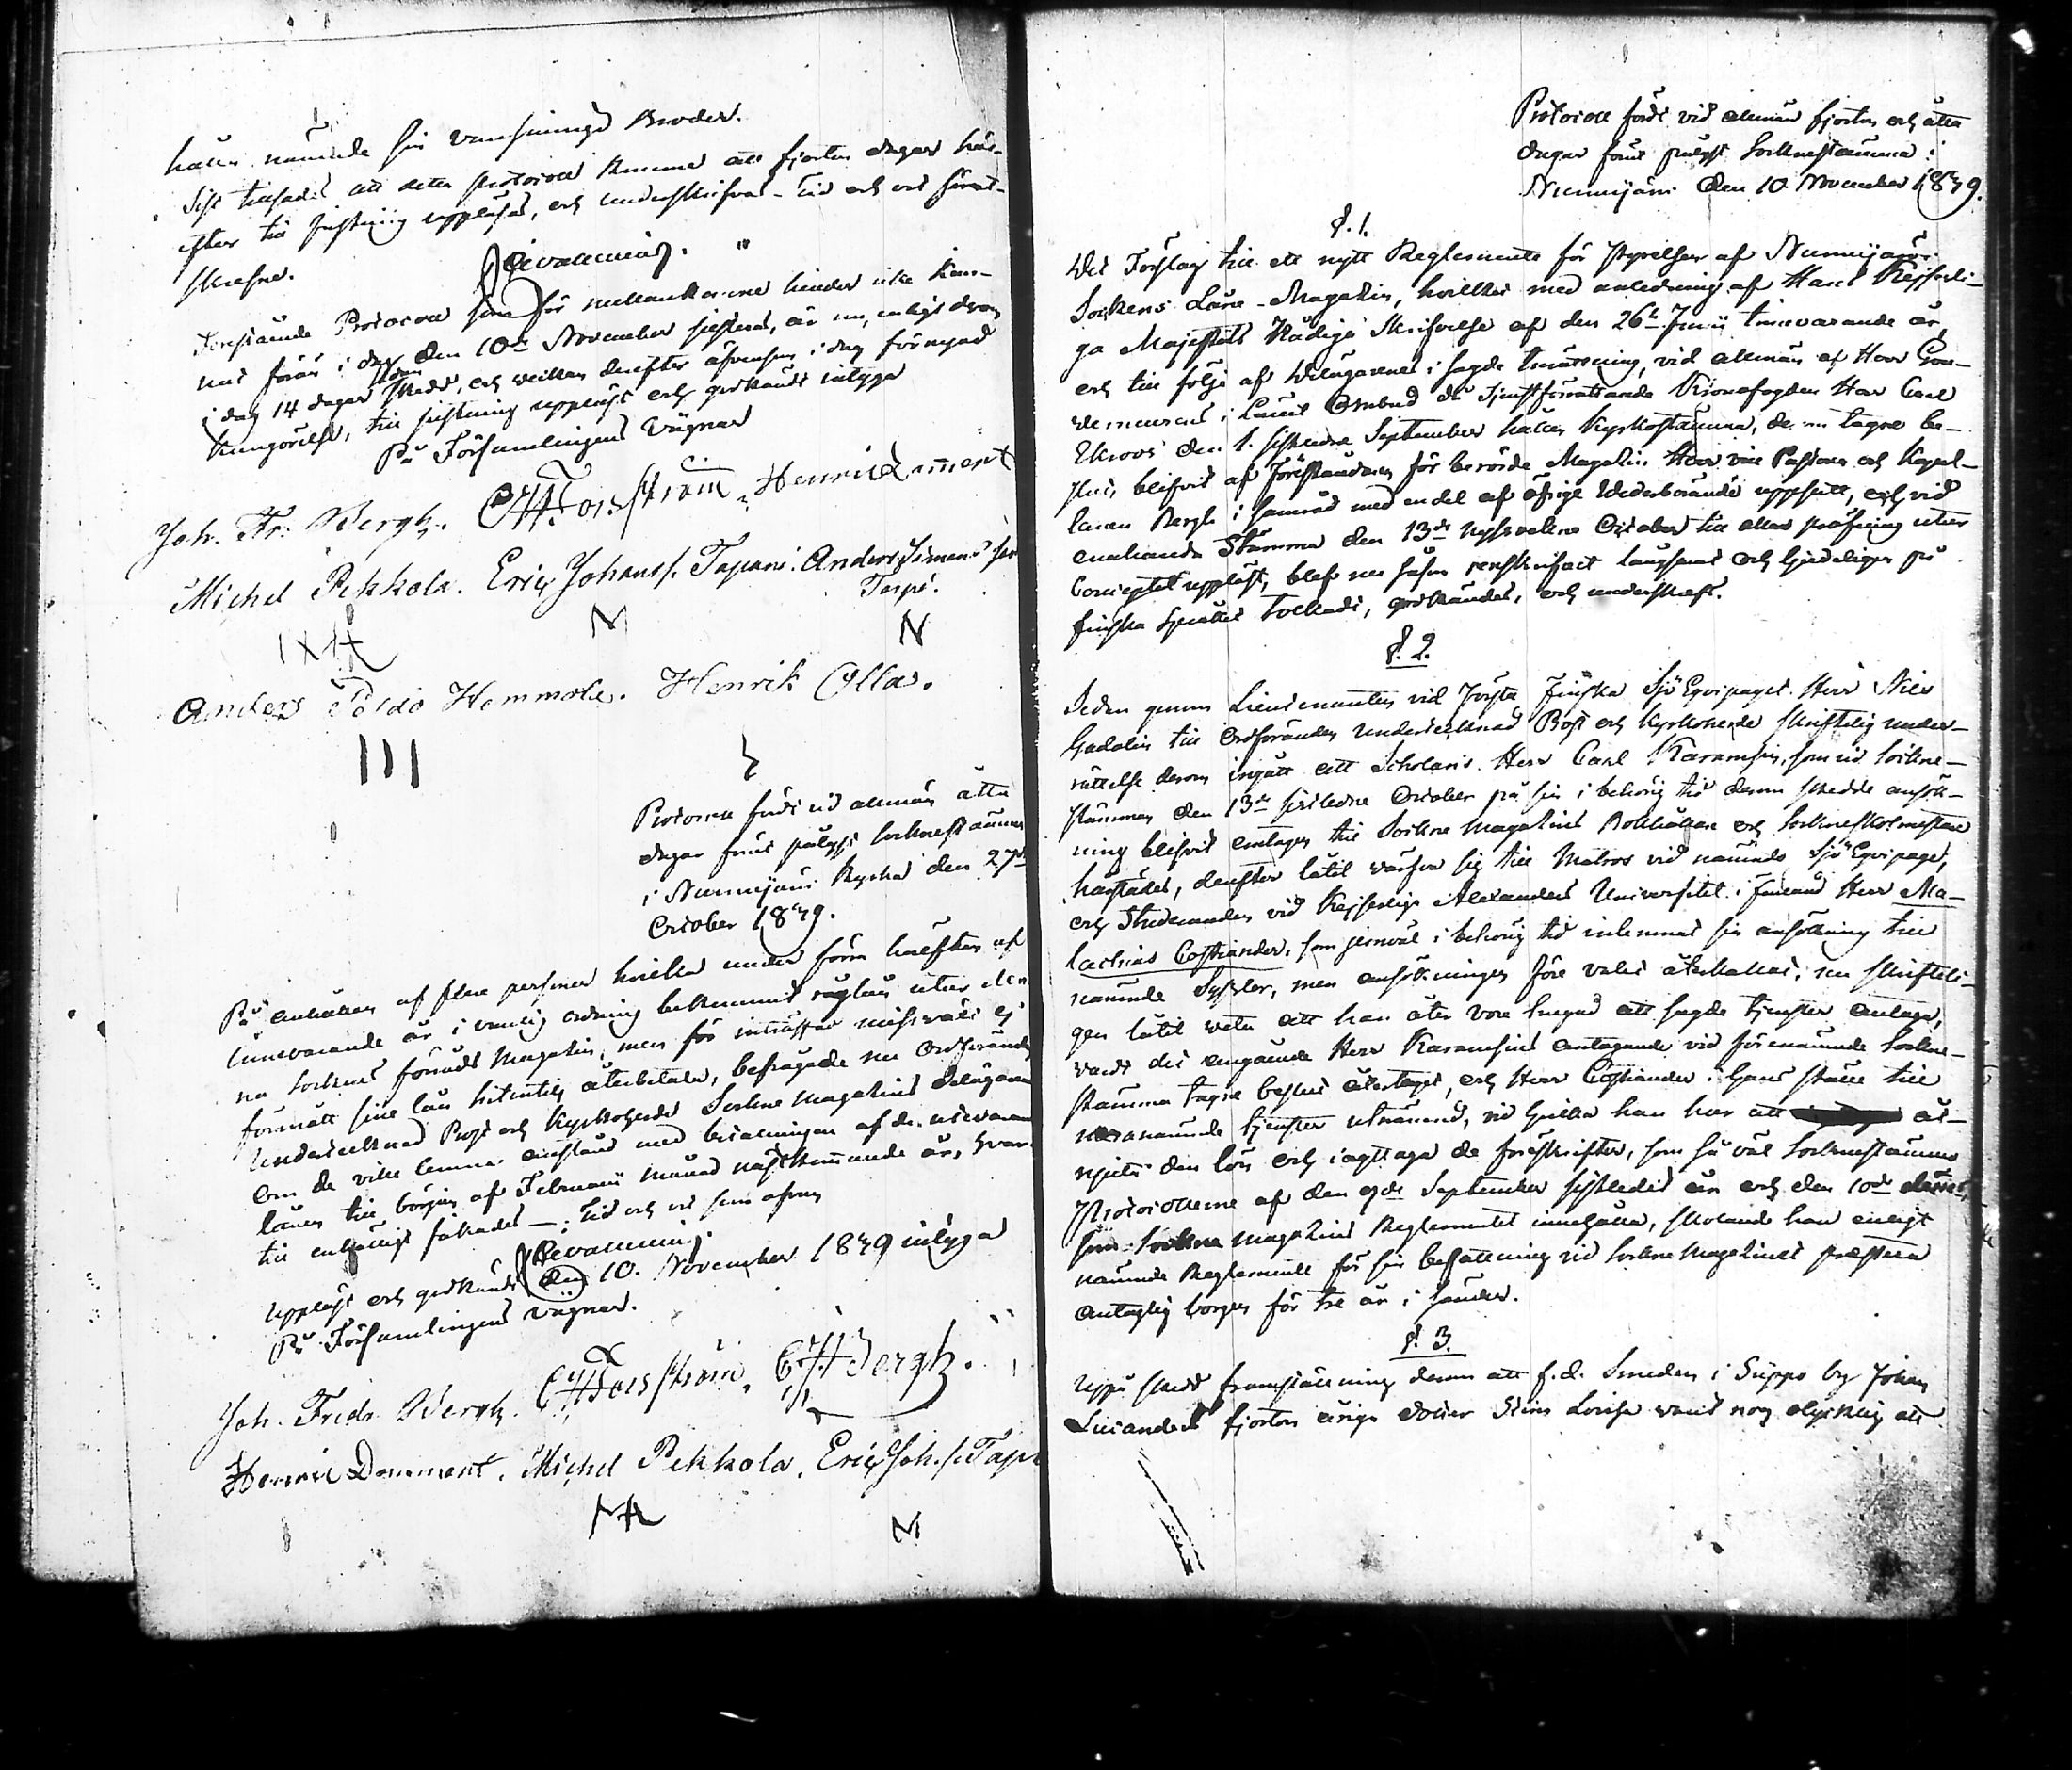 hålla nämnde sin vansinniga Broder.
Sist tillsades att detta protocoll kommer att fjorton dagar här-
efter till justering uppläsas, och underskrifvas. Tid och ort förut-
skrefne.
J. F. Wallenius.
Förestående Protocoll som för mellankomne hinder icke kun-
nat förr i dag den 10de November justeras, är nu, enligt derom
i dag 14 dagar sedan skedd, och weckan derefter äfvensom i dag förnyad
kungörelse, till justering uppläst och godkändt intyga
På Församlingens Vägnar
Joh. Fr. Bergh. Henric Dement
Michel Pekkola. Eric Johans s. Tapani. Anders Simons son
Tarpi.
Anders Polso Hemmola. Henrik Olla.
Protocoll fördt vid allmän åtta
dagar förut pålyst Socknestämma
i Nurmijärvi Kyrka den 27de
October 1839.
På anhållan af flere personer hvilka under förra hälften af
innevarande år i vanlig ordning bekommit råglån utur den-
na Sockens förråds Magasin, men för inträffad missväxt ej
förmått sine lån hitintills återbetala, befrågade nu Ordföranden
Undertecknad Prost och Kyrkoherde Sockne Magasinets Delägare
om de ville lemna anstånd med betalningen af de utevarande
lånen till början af Februarii månad nästkommande år, hvar-
till enhälligt jakades —; Tid och ort som ofvan
Wallenius.
Uppläst och godkändt den 10. November 1839 intyga
På Församlingens vägnar.
Joh. Fredr. Bergh. Bergh.
Henric Dement. Michel Pekkola. Eric Joh. s. Tapani
Protocoll fördt vid allmän fjorton och åtta
dagar förut pålyst Socknestämma i
Nurmijärvi den 10 November 1839.
§. 1.
Det Förslag till ett nytt Reglemente för styrelsen af Nurmijärvi
Sockens Låne-Magasin, hvilket med anledning af Hans Kejserli-
ga Majestäts Nådiga Skrifvelse af den 26te Junii innevarande år,
och till följe af Delägarenes i sagde inrättning, vid allmän af Herr Gou-
verneurens i Länet Ombud Tjenstförrättande Kronofogden Herr Carl
Ekroos den 1. sistledne September hållen Kyrkostämma, derom tagne be-
slut, blifvit af Föreståndaren för berörde Magasin Herr vice Pastorn och Kapel-
lanen Bergh i samråd med en del af öfrige Wederbörande uppsatt, och vid
enahanda Stämma den 13de nyssvekne October till allas pröfning uti
Conceptet uppläst, blef nu såsom renskrifvet långsamt och tydeligen på
finska språket tolkadt, godkändt, och underskrefs.
§. 2.
Sedan genom Lieutenanten vid Första Finska Sjö Equipaget Herr Nils
Gadolin till Ordföranden Undertecknad Prost och Kyrkoherde skriftelig under-
rättelse derom ingått att Scholaris Herr Carl Karamsin, som vid Sockne-
stämman den 13de sistledne October på sin i behörig tid derom skedde ansök-
ning blifvit antagen till Sockne Magasins Bokhållare och Sockneskolmästare
härstädes, derefter låtit värfva sig till Matros vid nämnde Sjö Equipage,
och Studeranden vid Kejserliga Alexanders Universitet i Finland Herr Ma-
lachias Costiander, som jemväl i behörig tid inlemnat sin ansökning till
nämnde Sysslor, men ansökningen före valet återkallat, nu skriftli-
gen låtit veta att han åter vore hugad att sagde tjenster antaga,
vardt det angående Herr Karamsins antagande vid förenämnde Sockne-
stämma tagne beslut återtaget, och Herr Costiander i hans ställe till
nämnde tjenster utnämnd, vid hvilka han har att åt-
njuta den lön och iagttaga de föreskrifter, som så väl Socknestämmo
Protocollerne af den 9de September sistledet år och den 10de dennes,
som Sockne Magasins Reglementet innehålla, skolande han enligt
nämnde Reglemente för sin befattning vid Sockne Magasinet præstera
antaglig borgen för tre år i sänder.
§. 3.
Uppå skedd framställning derom att f.d. Smeden i Suppo by Johan
Lucanders fjorton åriga dotter Stina Lovisa varit nog olycklig att